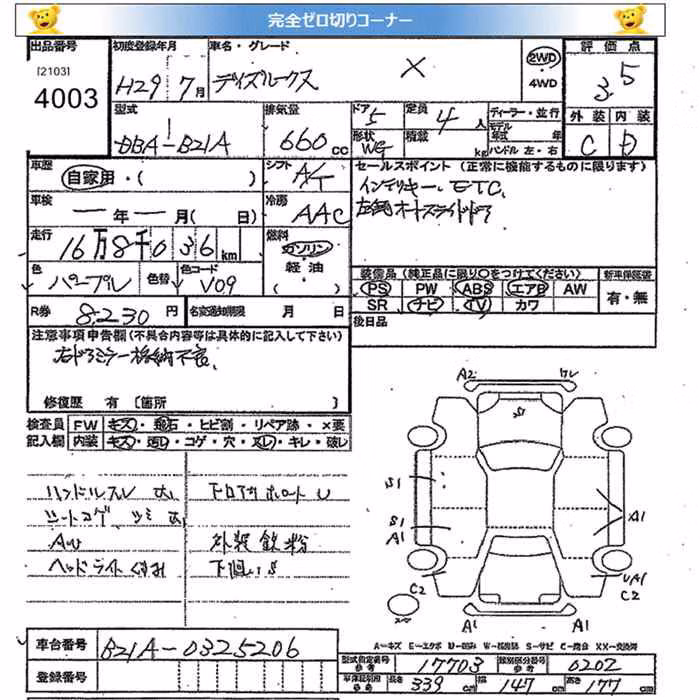 完全ゼロ切りコーナー
出品番号 初度登録年月 車名・グレード 評価点
[2103] 4003 H29年7月 デイズルークス X 2WD 4WD 3.5
型式 排気量 ドア 定員 ディーラー・並行 外装 内装
DBA-B21A 660cc 5 4人 モデル年式 年 C D
形状 WG 積載 kg ハンドル 左・右
車歴 自家用・( ) シフト A/T セールスポイント (正常に機能するものに限ります)
インテリキー、ETC、
車検 ー年ー月( 日) 冷房 AAC 左側オートスライドドア
走行 16万8千036km 燃料 ガソリン・軽油・( )
色 パープル 色替 色コード V09 装備品 (純正品に限り○をつけてください) 新車保証書
PS PW ABS エアB AW 有・無
SR ナビ TV カワ
R券 8,230円 名変通知期限 月 日 後日品
注意事項申告欄 (不具合内容等は具体的に記入して下さい)
右ドアミラー格納不良
修復歴 有 〔箇所
検査員記入欄 FW キズ・飛石・ヒビ割・リペア跡・×要
内装 キズ・汚れ・コゲ・穴・スレ・キレ・破レ
ハンドルスレ 大 下ロアサポートU
シートコゲ
AW 外装鉄粉
ヘッドライトくすみ 下廻りS
A2 S1 S1 A1 A1 C2 UA1 C2 A1 A1
A-キズ E-エクボ U-凹み W-補修跡 S-サビ C-腐食 XX-交換済
車台番号 B21A-0325206
登録番号
型式指定番号 参考 17703 類別区分番号 参考 0202
車検証記載 参考 長さ 339cm 幅 147cm 高さ 177cm